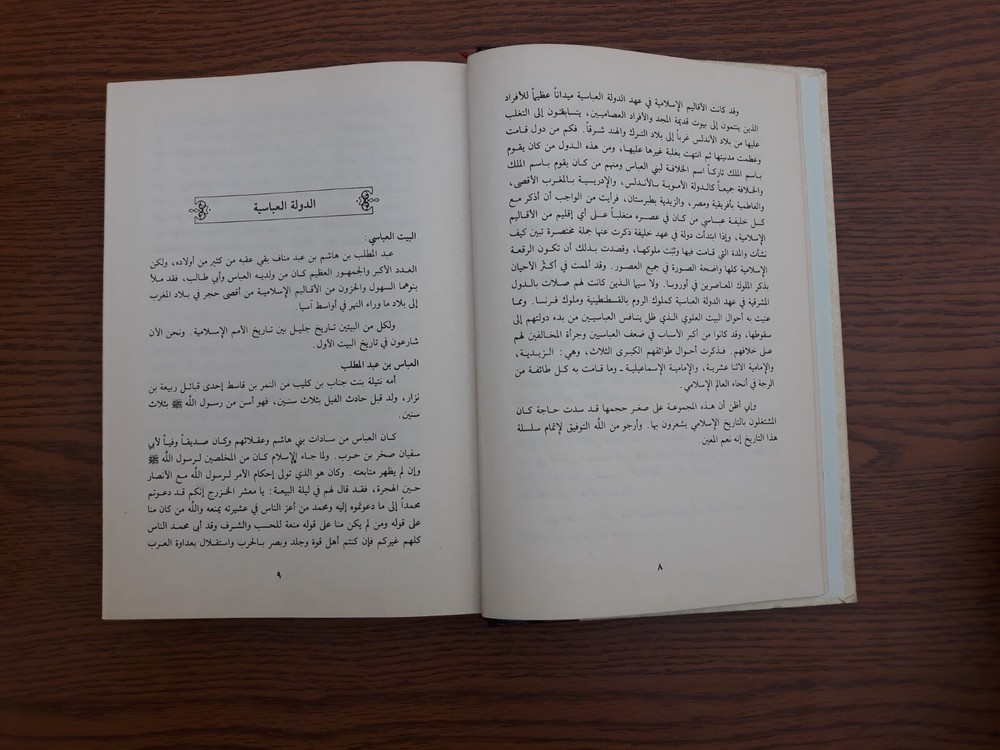 وقد كانت الأقاليم الإسلامية في عهد الدولة العباسية ميداناً عظيماً للأفراد
الذين ينتمون إلى بيوت قديمة المجد والأفراد العصاميين، يتسابقون إلى التغلب
عليها من بلاد الأندلس غرباً إلى بلاد الترك والهند شرقاً. فكم من دول قامت
وعظمت مدنيتها ثم انتهت بغلبة غيرها عليها، ومن هذه الدول من كان يقوم
باسم الملك تاركاً اسم الخلافة لبني العباس ومنهم من كان يقوم باسم الملك
والخلافة جميعاً كالدولة الأموية بالأندلس، والإدريسية بالمغرب الأقصى،
والفاطمية بأفريقية ومصر، والزيدية بطبرستان، فرأيت من الواجب أن أذكر مع
كل خليفة عباسي من كان في عصره متغلباً على أي إقليم من الأقاليم
الإسلامية، وإذا ابتدأت دولة في عهد خليفة ذكرت عنها جملة مختصرة تبين كيف
نشأت والمدة التي قامت فيها وثبت ملوكها، وقصدت بذلك أن تكون الرقعة
الإسلامية كلها واضحة الصورة في جميع العصور. وقد ألممت في أكثر الأحيان
بذكر الملوك المعاصرين في أوروبا. ولا سيما الذين كانت لهم صلات بالدول
المشرقية في عهد الدولة العباسية كملوك الروم بالقسطنطينية وملوك فرنسا. ومما
عنيت به أحوال البيت العلوي الذي ظل ينافس العباسيين من بدء دولتهم إلى
سقوطها، وقد كانوا من أكبر الأسباب في ضعف العباسيين وجرأة المخالفين لهم
على خلافهم. فذكرت أحوال طوائفهم الكبرى الثلاث، وهي: الزيدية،
والإمامية الاثنا عشرية، والإمامية الإسماعيلية - وما قامت به كل طائفة من
الرجة في أنحاء العالم الإسلامي.
وإني أظن أن هذه المجموعة على صغر حجمها قد سدت حاجة كان
المشتغلون بالتاريخ الإسلامي يشعرون بها. وأرجو من الله التوفيق لإتمام سلسلة
هذا التاريخ إنه نعم المعين.
٨
الدولة العباسية
البيت العباسي:
عبد المطلب بن هاشم بن عبد مناف بقي عقبه من كثير من أولاده، ولكن
العدد الأكبر والجمهور العظيم كان من ولديه العباس وأبي طالب، فقد ملأ
بنوهما السهول والحزون من الأقاليم الإسلامية من أقصى حجر في بلاد المغرب
إلى بلاد ما وراء النهر في أواسط آسيا.
ولكل من البيتين تاريخ جليل بين تاريخ الأمم الإسلامية. ونحن الآن
شارعون في تاريخ البيت الأول.
العباس بن عبد المطلب
أمه نتيلة بنت جناب بن كليب من النمر بن قاسط إحدى قبائل ربيعة بن
نزار، ولد قبل حادث الفيل بثلاث سنين، فهو أسن من رسول الله ﷺ بثلاث
سنين.
كان العباس من سادات بني هاشم وعقلائهم وكان صديقاً وفياً لأبي
سفيان صخر بن حرب. ولما جاء الإسلام كان من المخلصين لرسول الله ﷺ
وإن لم يظهر متابعته. وكان هو الذي تولى إحكام الأمر لرسول الله مع الأنصار
حين الهجرة، فقد قال لهم في ليلة البيعة: يا معشر الخزرج إنكم قد دعوتم
محمداً إلى ما دعوتموه إليه ومحمد من أعز الناس في عشيرته يمنعه والله من كان منا
على قوله ومن لم يكن منا على قوله منعة للحسب والشرف وقد أبى محمد الناس
كلهم غيركم فإن كنتم أهل قوة وجلد وبصر بالحرب واستقلال بعداوة العرب
٩